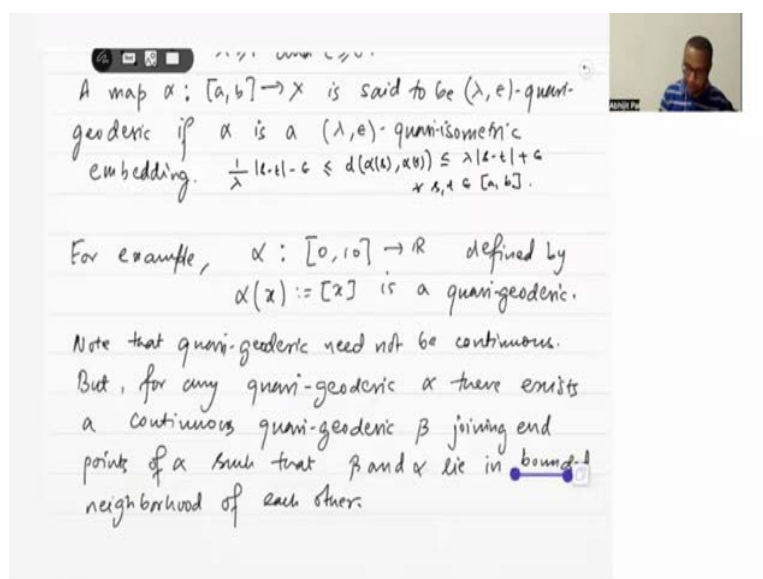 A map α : [a, b] → X is said to be (λ, ϵ)-quasi-
geodesic if α is a (λ, ϵ)-quasi-isometric
embedding. 1/λ |s-t| - ϵ ≤ d(α(s), α(t)) ≤ λ|s-t| + ϵ
∀ s, t ∈ [a, b].
For example, α : [0, 10] → ℝ defined by
α(x) := [x] is a quasi-geodesic.
Note that quasi-geodesic need not be continuous.
But, for any quasi-geodesic α there exists
a continuous quasi-geodesic β joining end
points of α such that β and α lie in bounded
neighborhood of each other.
Abhijit Pal